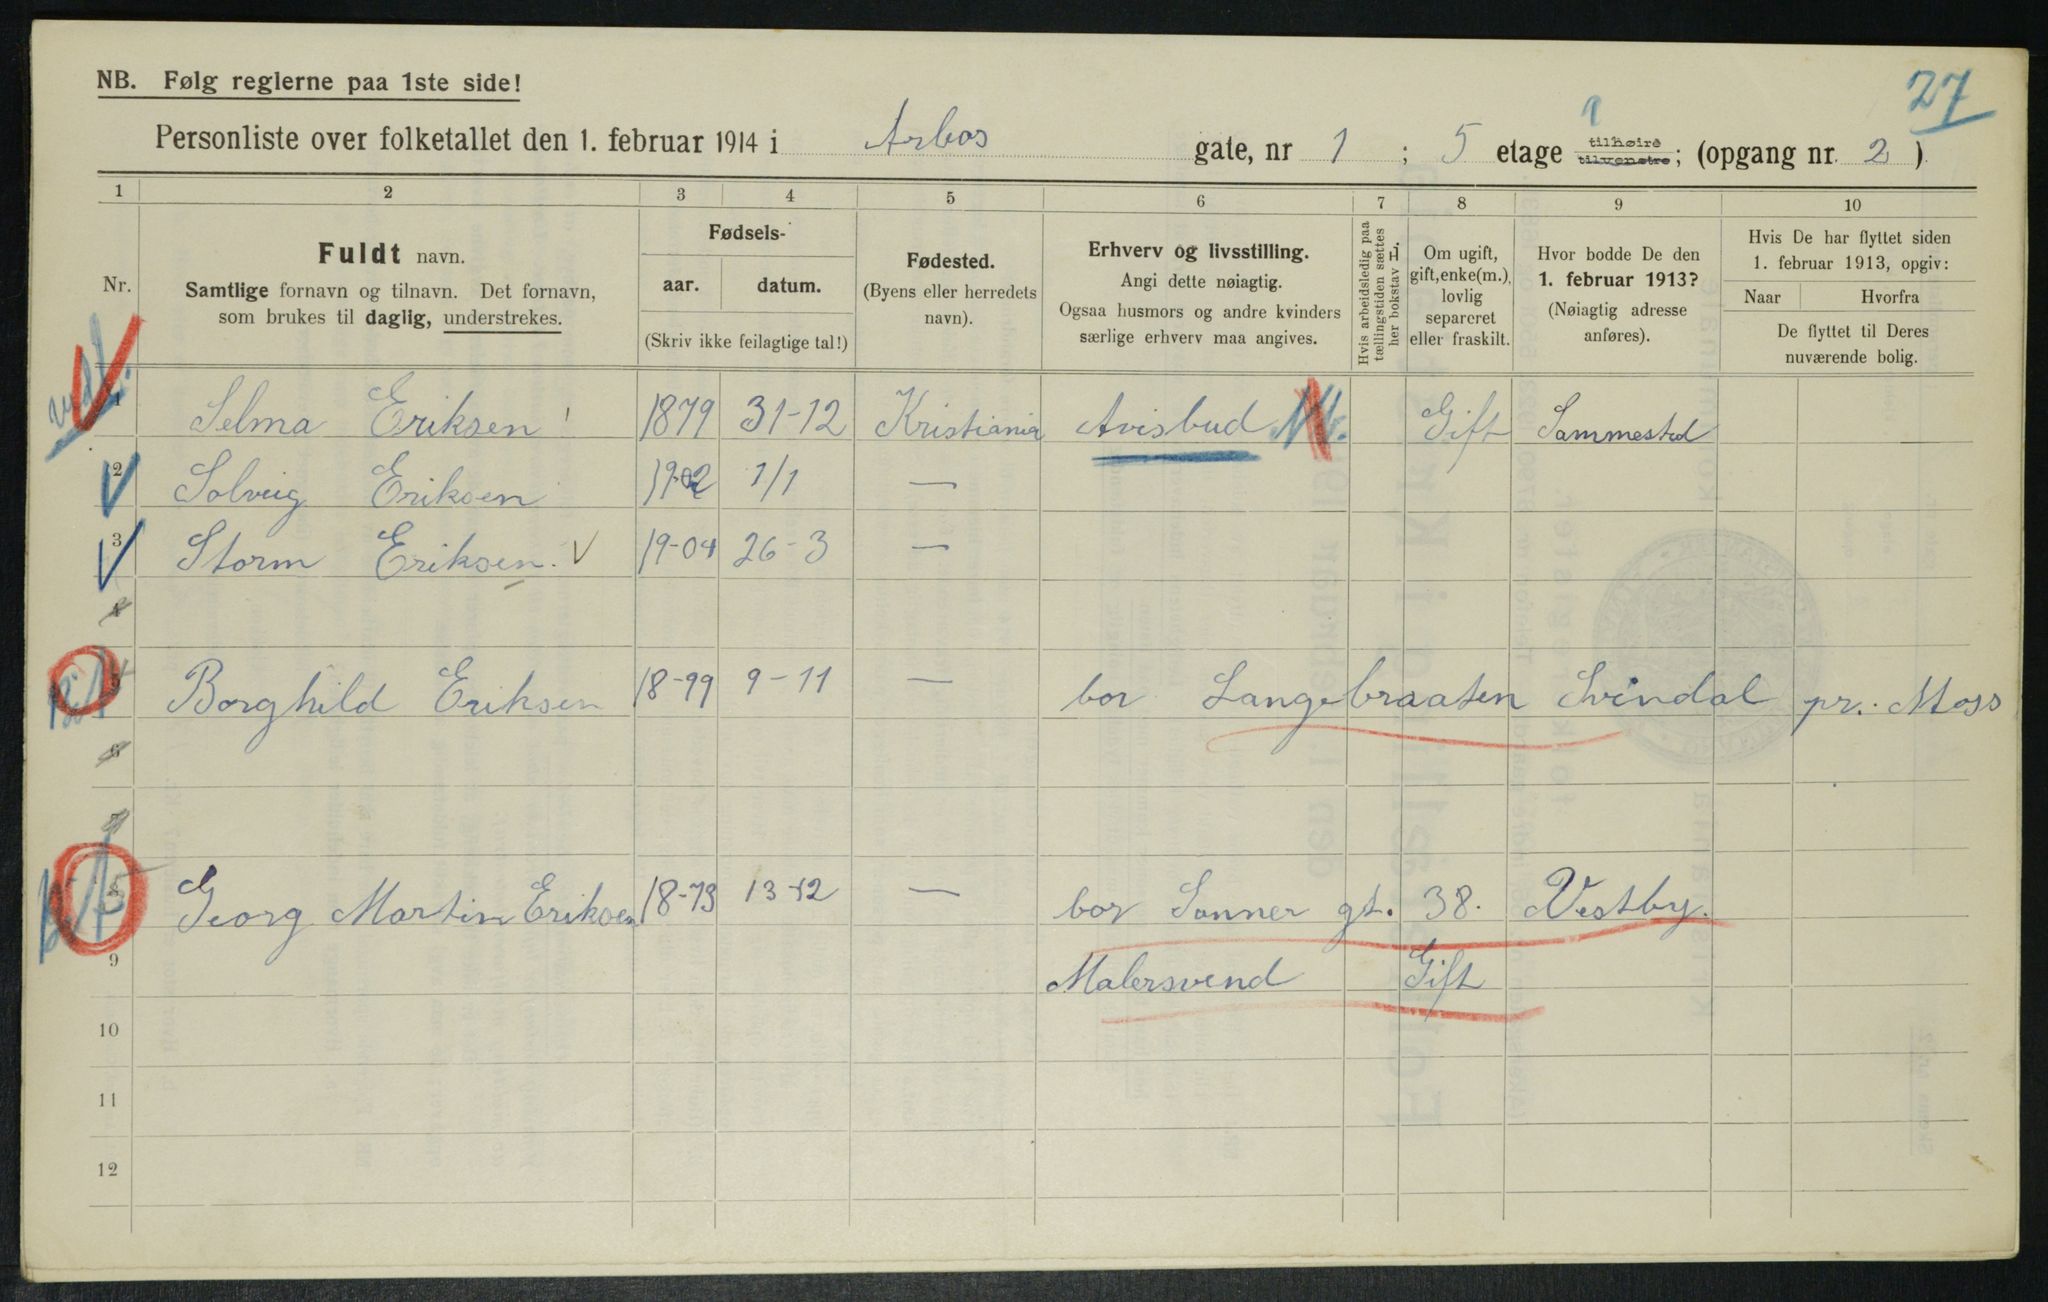 27
NB. Følg reglerne paa 1ste side!
Personliste over folketallet den 1. februar 1914 i Arbos gate, nr 1 ; 5 etage tilhøire tilvenstre; (opgang nr. 2 )
1 2 3 4 5 6 7 8 9 10
Nr.
Fuldt navn.
Samtlige fornavn og tilnavn. Det fornavn,
som brukes til daglig, understrekes.
Fødsels-
aar. datum.
(Skriv ikke feilagtige tal!)
Fødested.
(Byens eller herredets
navn).
Erhverv og livsstilling.
Angi dette nøiagtig.
Ogsaa husmors og andre kvinders
særlige erhverv maa angives.
Hvis arbeidsledig paa
tællingstiden sættes
her bokstav L.
Om ugift,
gift, enke(m.),
lovlig
separeret
eller fraskilt.
Hvor bodde De den
1. februar 1913?
(Nøiagtig adresse
anføres).
Hvis De har flyttet siden
1. februar 1913, opgiv:
Naar Hvorfra
De flyttet til Deres
nuværende bolig.
1 Selma Eriksen 1879 31-12 Kristiania Avisbud Gift Sammested
2 Solveig Eriksen 19-02 1/1 —
3 Storm Eriksen. 19-04 26-3 —
4
5 Borghild Eriksen 18-99 9-11 — bor Langebraaten Svindal pr. Moss
6
7
5 Georg Martin Eriksen 18-73 13-12 — bor Sanner gt. 38. Vestby.
9 Malersvend Gift
10
11
12